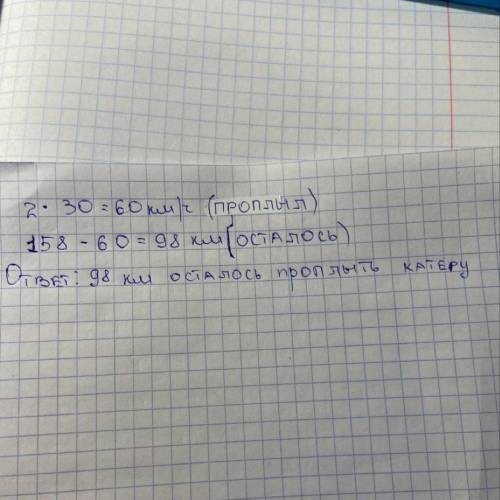 2 · 30 = 60 км/ч (проплыл)
158 - 60 = 98 км (осталось)
Ответ: 98 км осталось проплыть катеру